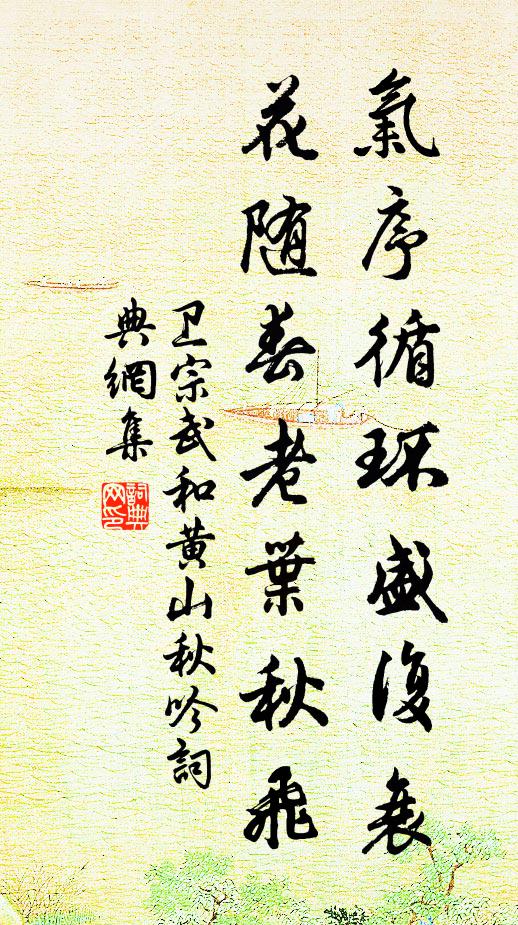 氣序循环盛復衰
花随春老葉秋飛
卫宗武和黄山秋吟詞
典網集
詞典
网印